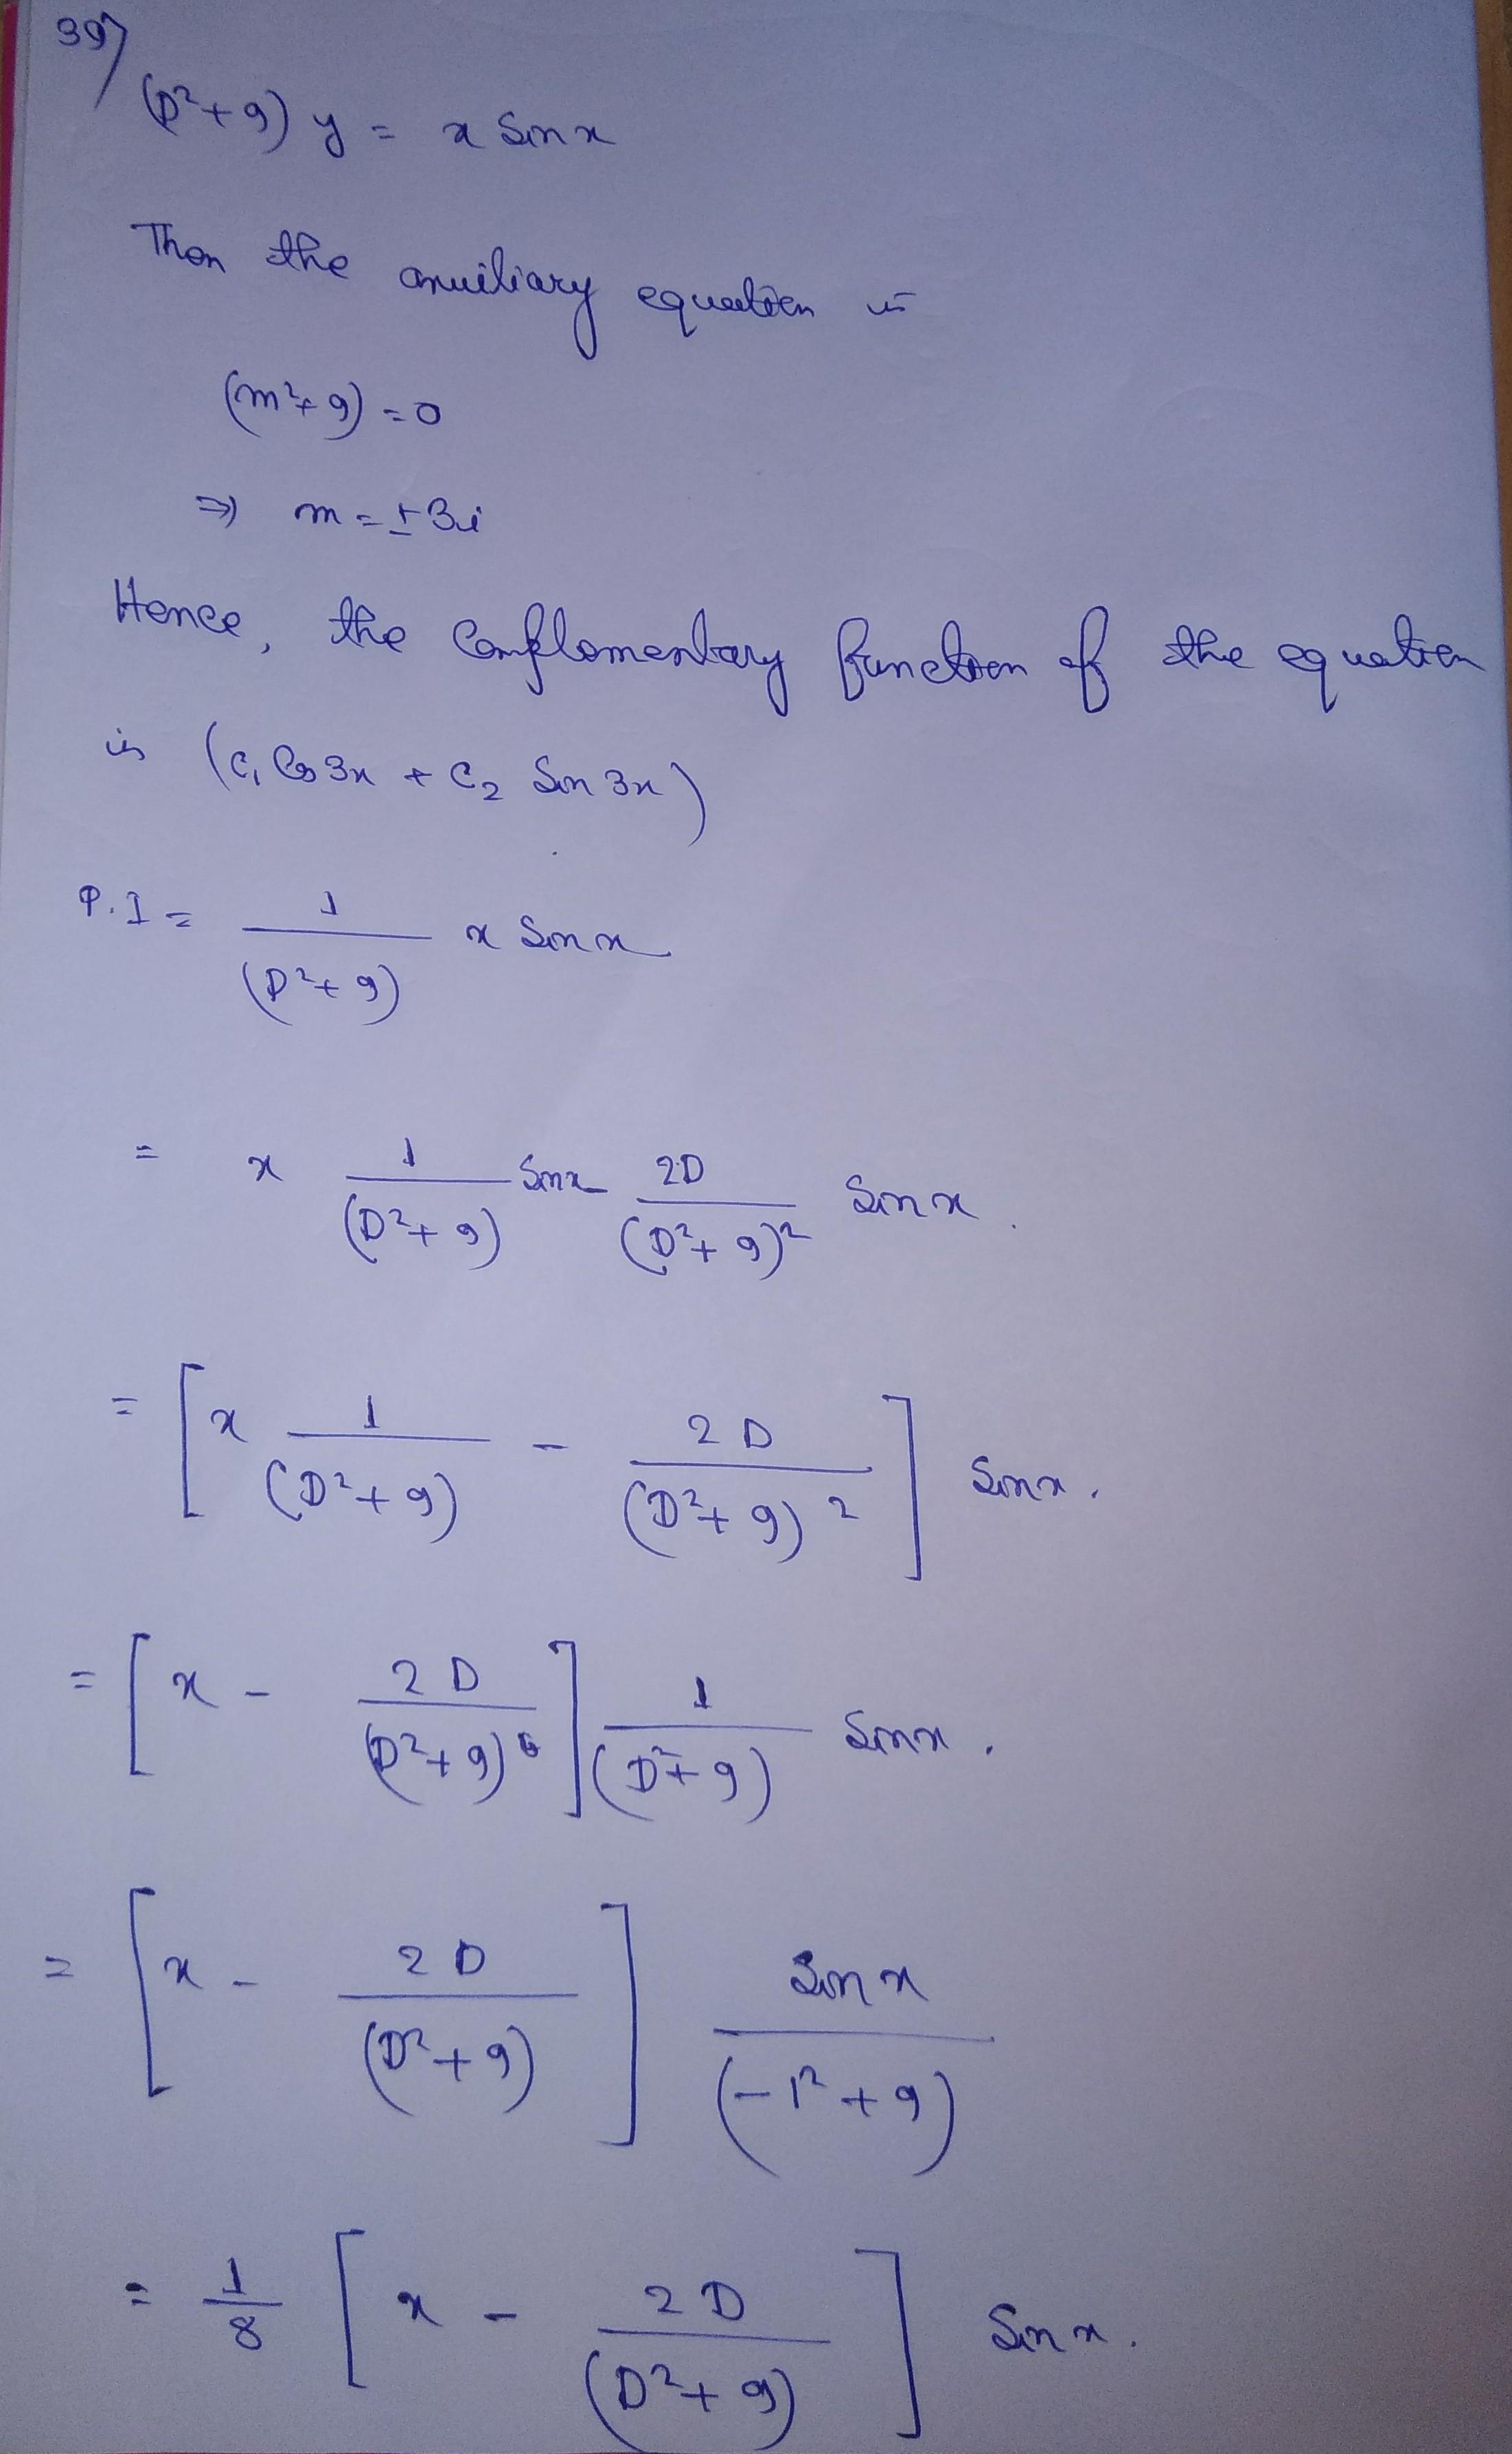 39)
(D²+9) y = x Sin x
Then the auxiliary equation is
(m²+9) = 0
⇒ m = ± 3i
Hence, the Complementary function of the equation
is (C₁ Cos 3x + C₂ Sin 3x)
P.I = 1/(D²+9) x Sin x
= x 1/(D²+9) Sin x 2D/(D²+9)² Sin x.
= [x 1/(D²+9) - 2D/(D²+9)²] Sin x.
= [x - 2D/(D²+9)] 1/(D²+9) Sin x.
= [x - 2D/(D²+9)] Sin x/(-1²+9)
= 1/8 [x - 2D/(D²+9)] Sin x.